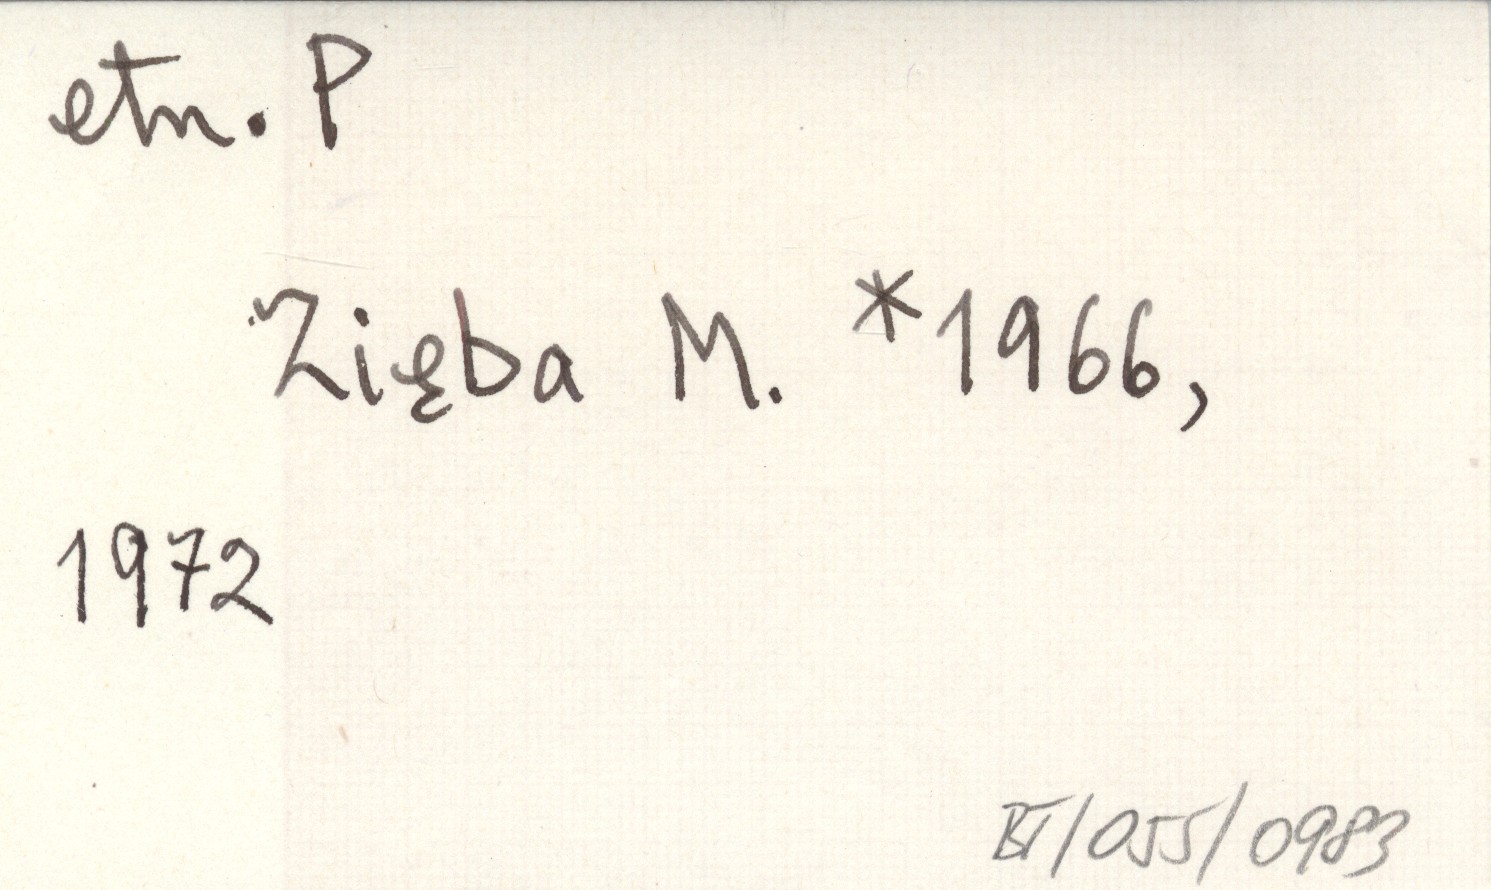 etn. P
Zięba M. *1966,
1972
BT/055/0983